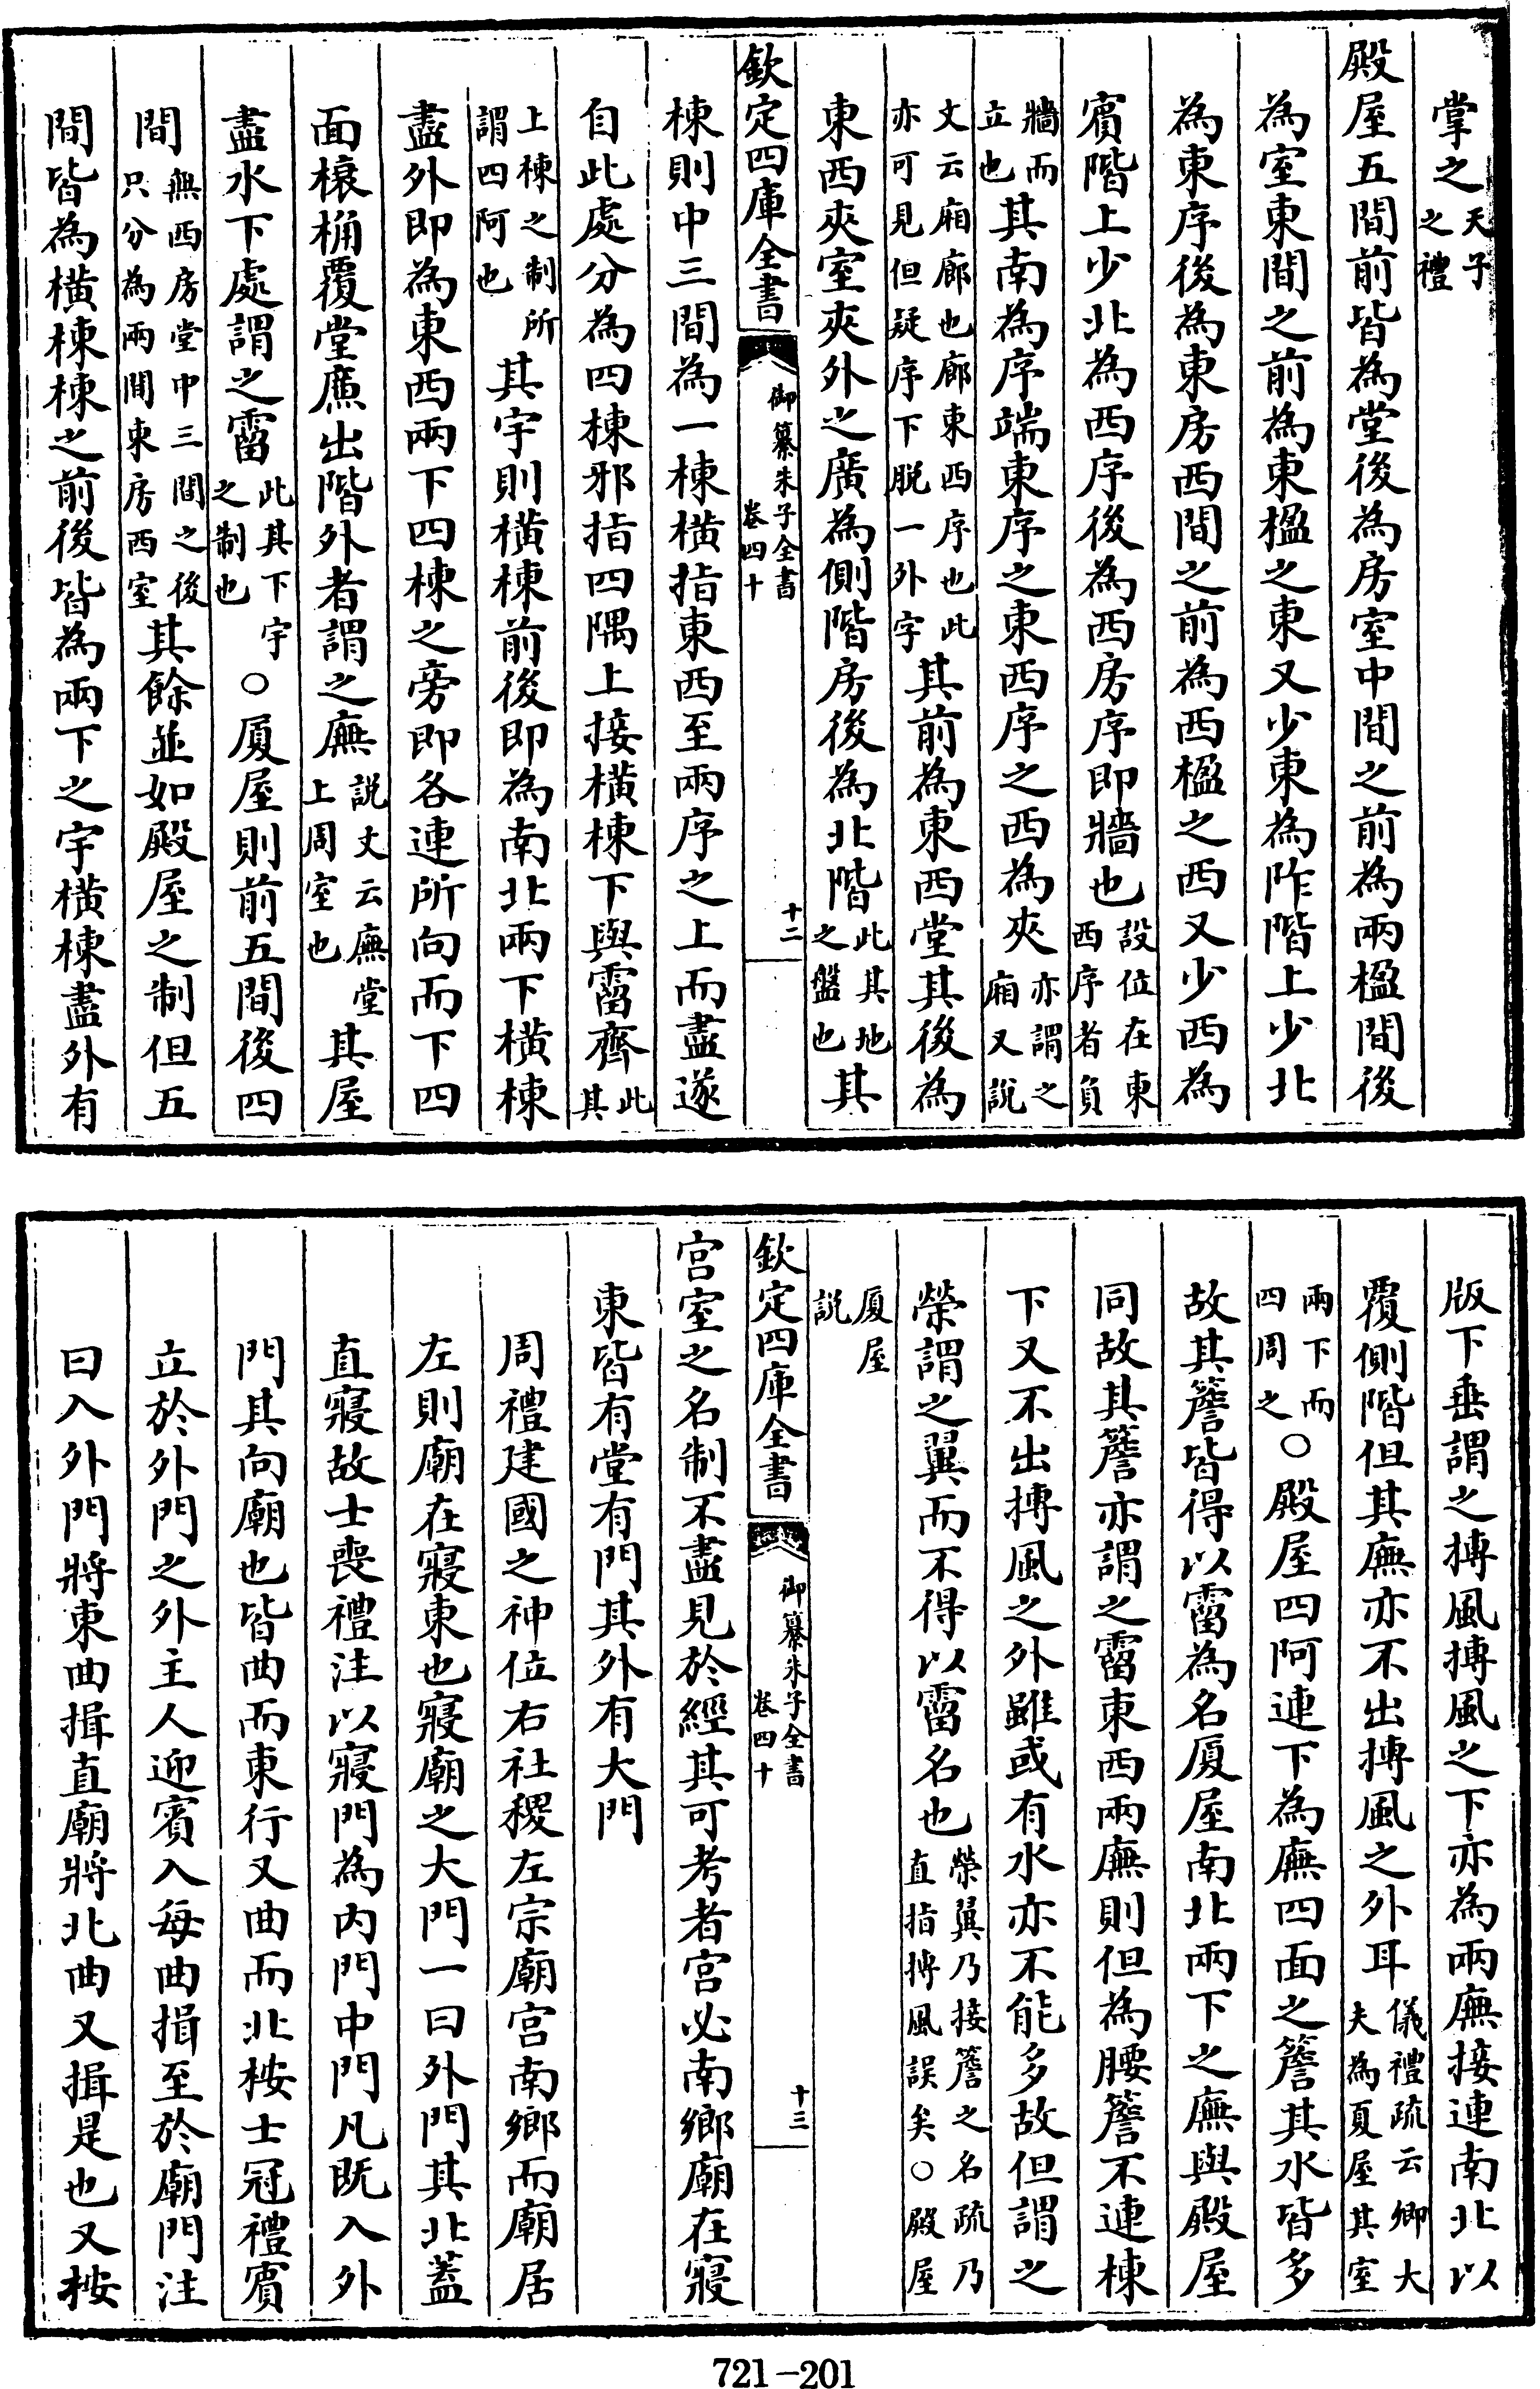 掌之天子之禮
殿屋五間前皆為堂後為房室中間之前為兩楹間後
為室東間之前為東楹之東又少東為阼階上少北
為東序後為東房西間之前為西楹之西又少西為
賓階上少北為西序後為西房序即牆也設位在東西序者負
牆而立也其南為序端東序之東西序之西為夾亦謂之廂又說
文云廂廊也廊東西序也此亦可見但疑序下脫一外字其前為東西堂其後為
東西夾室夾外之廣為側階房後為北階此其地之盤也其
欽定四庫全書 御纂朱子全書 卷四十 十二
棟則中三間為一棟橫指東西至兩序之上而盡遂
自此處分為四棟邪指四隅上接橫棟下與霤齊此其
上棟之制所謂四阿也其宇則橫棟前後即為南北兩下橫棟
盡外即為東西兩下四棟之旁即各連所向而下四
面榱桷覆堂廉出階外者謂之廡說文云廡堂上周室也其屋
盡水下處謂之霤此其下宇之制也○厦屋則前五間後四
間無西房堂中三間之後只分為兩間東房西室其餘並如殿屋之制但五
間皆為橫棟棟之前後皆為兩下之宇橫棟盡外有
版下垂謂之搏風搏風之下亦為兩廡接連南北以
覆側階但其廡亦不出搏風之外耳儀禮疏云卿大夫為夏屋其室
兩下而四周之○殿屋四阿連下為廡四面之簷其水皆多
故其簷皆得以霤為名厦屋南北兩下之廡與殿屋
同故其簷亦謂之霤東西兩廡則但為腰簷不連棟
下又不出搏風之外雖或有水亦不能多故但謂之
榮謂之翼而不得以霤名也榮翼乃接簷之名疏乃直指搏風誤矣○殿屋
厦屋說
欽定四庫全書 御纂朱子全書 卷四十 十三
宮室之名制不盡見於經其可考者宮必南鄉廟在寢
東皆有堂有門其外有大門
周禮建國之神位右社稷左宗廟宮南鄉而廟居
左則廟在寢東也寢廟之大門一曰外門其北蓋
直寢故士喪禮注以寢門為內門中門凡既入外
門其向廟也皆曲而東行又曲而北按士冠禮賓
立於外門之外主人迎賓入每曲揖至於廟門注
曰入外門將東曲揖直廟將北曲又揖是也又按
721-201